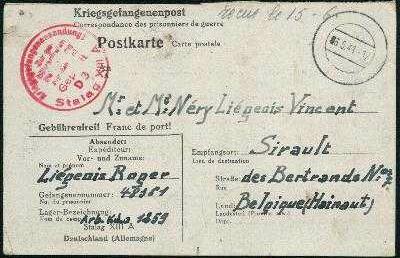 Kriegsgefangenenpost
Correspondance des prisonniers de guerre
Reçue le 15-6
Postkarte Carte postale
Stalag XIII A
Mr. et Me. Néry Liégeois Vincent
Gebührenfrei! Franc de port!
Absender:
Expéditeur:
Vor- und Zuname:
Nom et prénom
Liégeois Roger
Gefangenennummer:
No. du prisonnier
Lager-Bezeichnung:
Nom du camp
Arb. Kdo 1859
Stalag XIII A
Deutschland (Allemagne)
Empfangsort: Sirault
Lieu de destination
Straße: des Bertrands
Rue
Belgique (Hainaut)